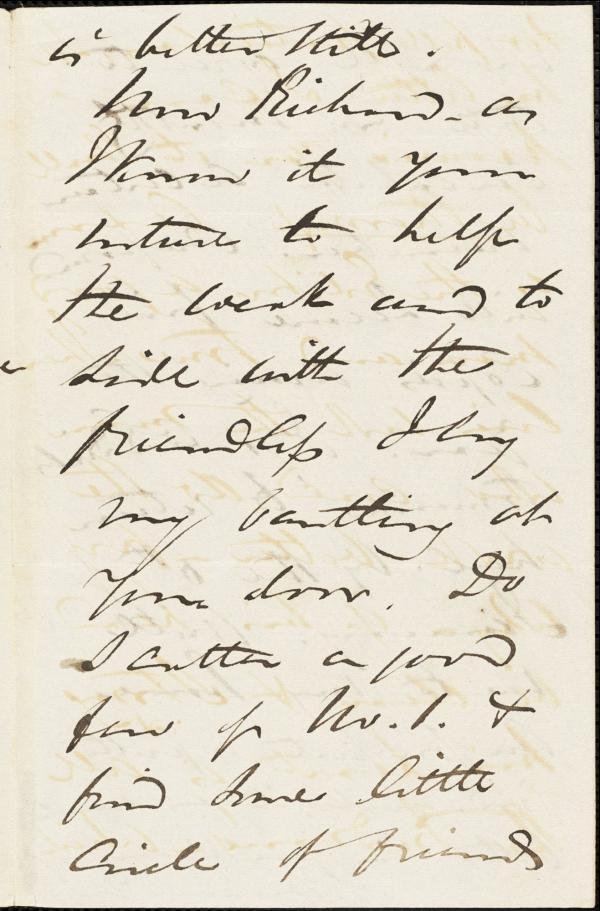 is better still.
Now Richard - as
I know it your
nature to help
the weak and to
side with the
friendless I lay
my bantling at
your door. Do
scatter a good
few of No. 1. &
find some little
circle of friends